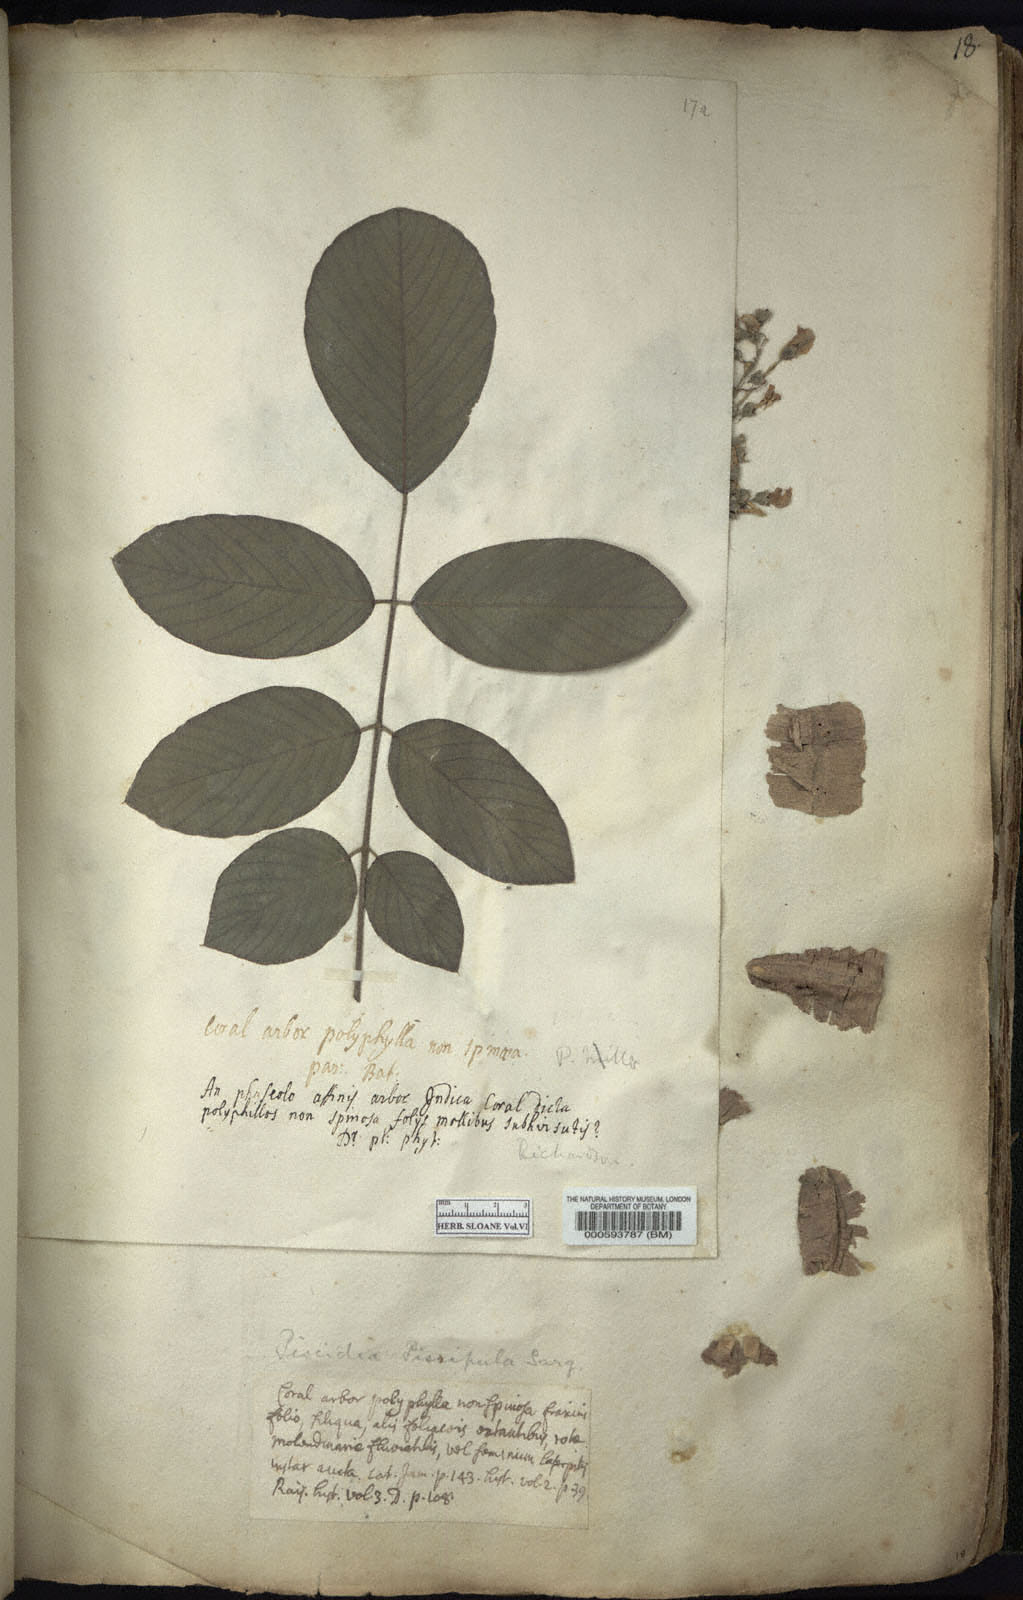 18
17a
Coral arbor polyphylla non spinosa.
par: Bat:
An phaseolo affinis arbor Indica Coral dicta
polyphillos non spinosa folys mollibus subhirsutis?
Dr. pl: phyt:
Richardson.
mm 1 2 3
HERB. SLOANE Vol.VI
THE NATURAL HISTORY MUSEUM, LONDON
DEPARTMENT OF BOTANY
000593787 (BM)
Piscidia Piscipula Sarg.
Coral arbor polyphylla non spinosa fraxini
folio, siliqua, alis foliaceis extantibus, rotæ
molendinariæ fluviatilis, vel seminum laserpitij
instar aucta. Cat. Jam. p. 143. hist. vol. 2. p. 39.
Raij. hist. vol 3. D. p. 108.